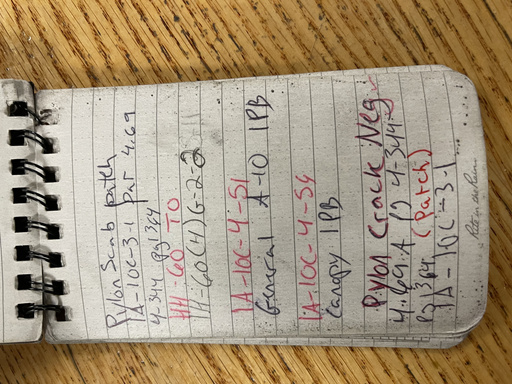 Pylon Scab patch
1A-10C-3-1 par 4.69
4-344 pg 1364
HH-60 TO
1H-60(4)G-2-2
1A-10C-4-S1
General A-10 IPB
1A-10C-4-S4
Canopy IPB
Pylon Crack Neg
4.69.A pg 4-344
pg 1364 (Patch)
1A-10C-3-1